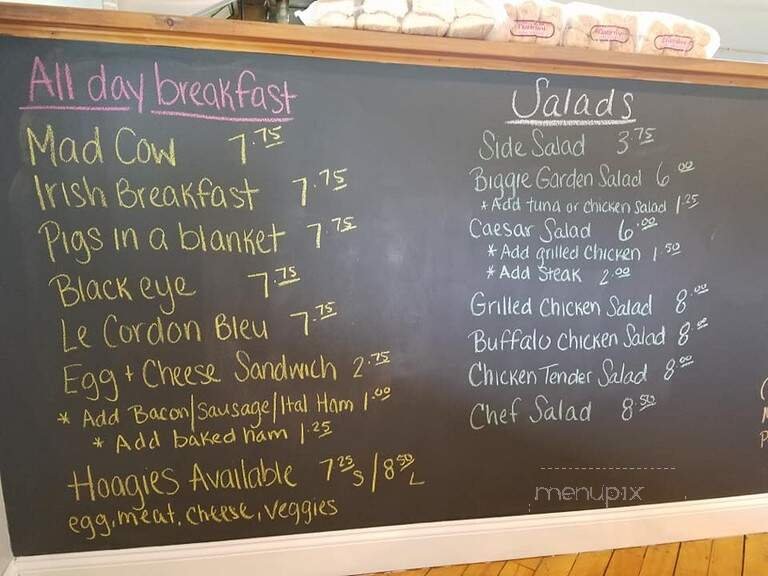 All day breakfast
Mad Cow 7.75
Irish Breakfast 7.75
Pigs in a blanket 7.75
Black eye 7.75
Le Cordon Bleu 7.75
Egg + Cheese Sandwich 2.75
* Add Bacon/Sausage/Ital Ham 1.00
* Add baked ham 1.25
Hoagies Available 7.25 S / 8.50 L
egg, meat, cheese, veggies
Salads
Side Salad 3.75
Biggie Garden Salad 6.00
* Add tuna or chicken salad 1.25
Caesar Salad 6.00
* Add grilled chicken 1.50
* Add Steak 2.00
Grilled Chicken Salad 8.00
Buffalo Chicken Salad 8.00
Chicken Tender Salad 8.00
Chef Salad 8.50
menupix